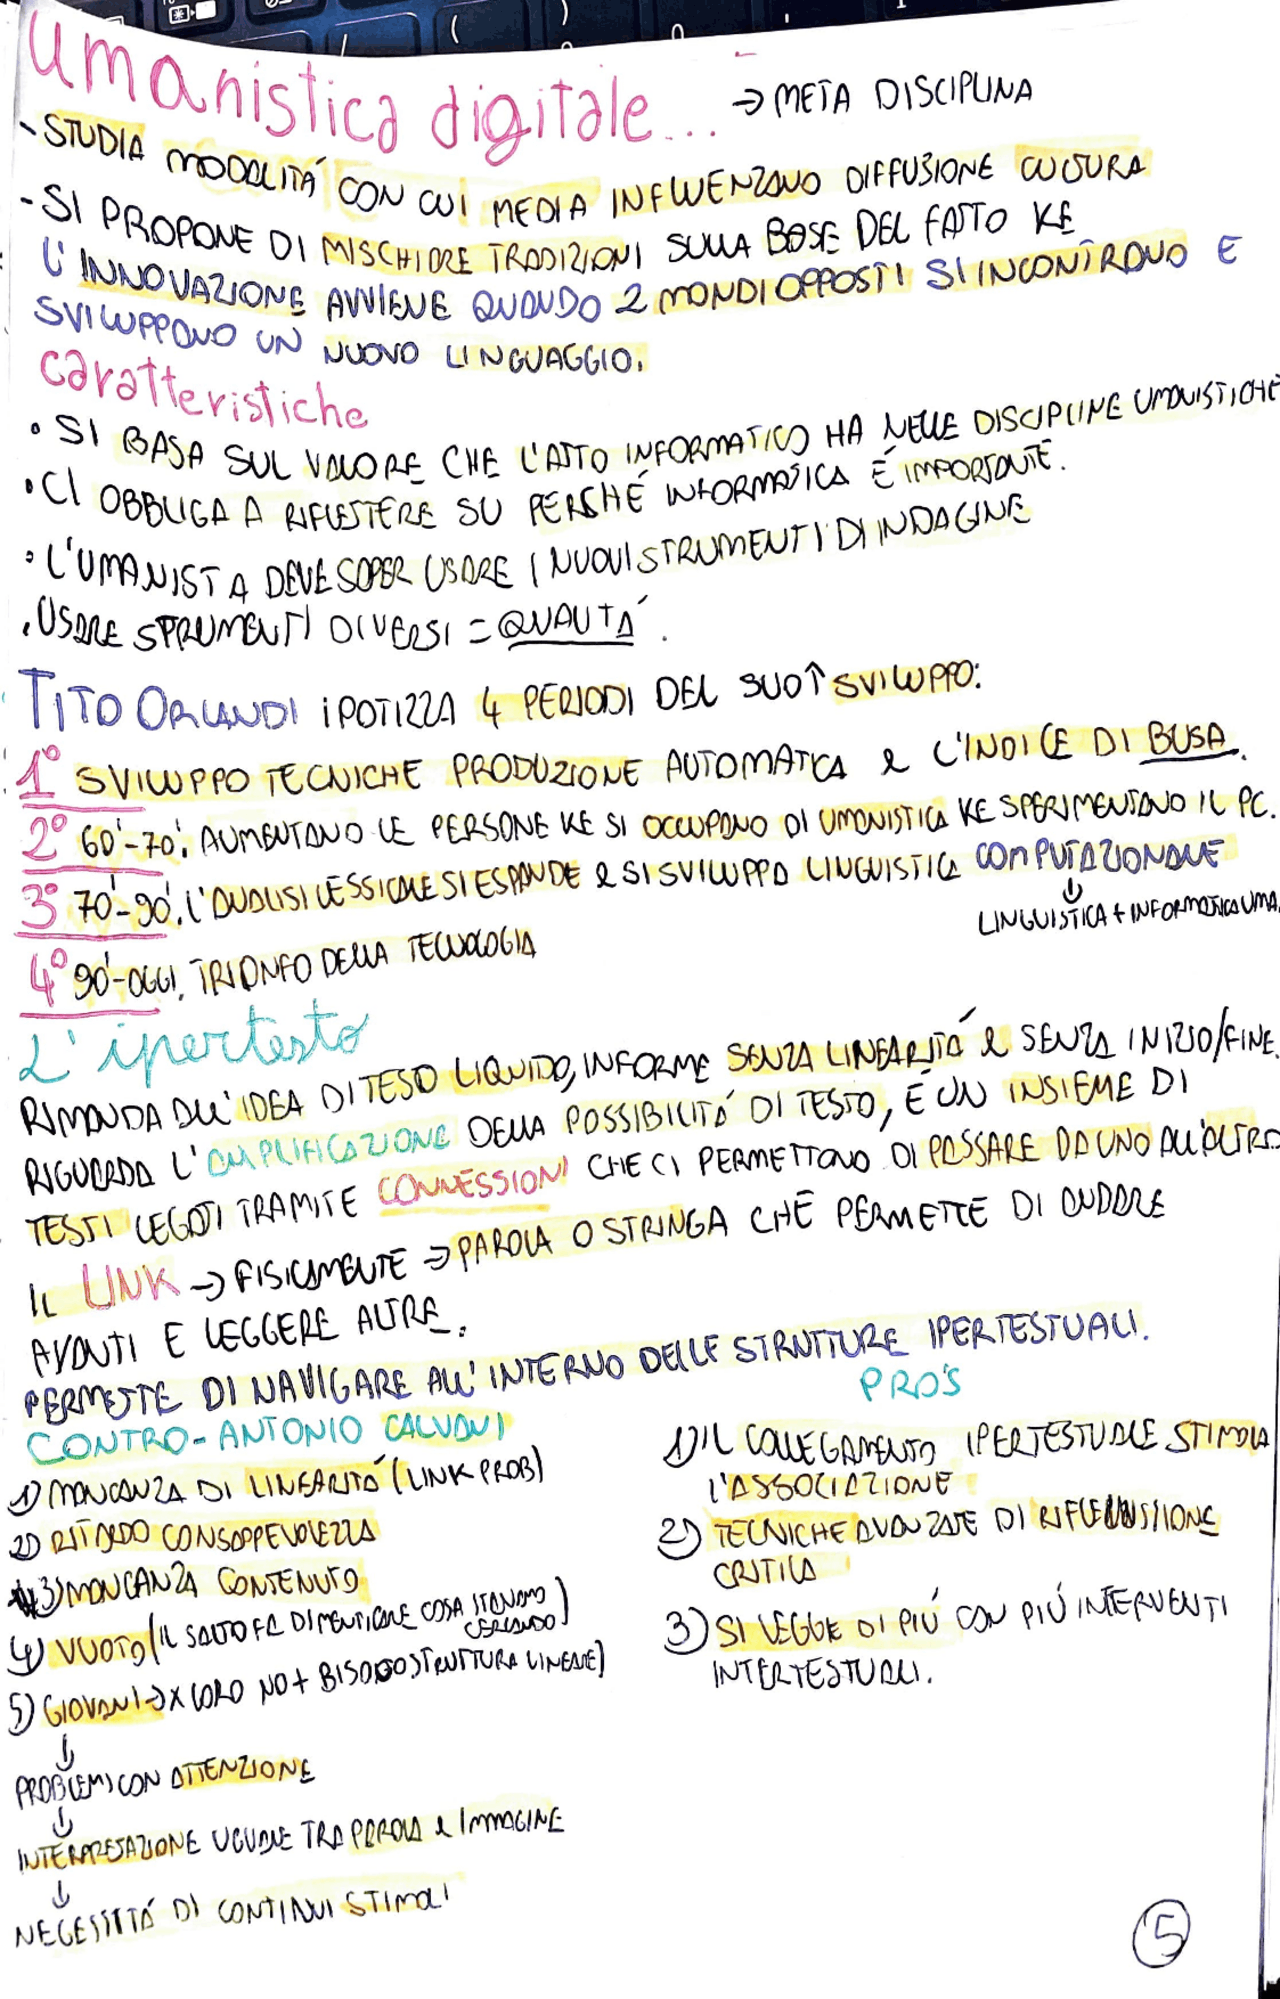 umanistica digitale... → META DISCIPLINA
- STUDIA MODALITÁ CON CUI MEDIA INFLUENZANO DIFFUSIONE CULTURA
- SI PROPONE DI MISCHIARE TRADIZIONI SULLA BASE DEL FATTO KE
L'INNOVAZIONE AVVIENE QUANDO 2 MONDI OPPOSTI SI INCONTRANO E
SVILUPPANO UN NUOVO LINGUAGGIO.
caratteristiche
• SI BASA SUL VALORE CHE L'ATTO INFORMATICO HA NELLE DISCIPLINE UMANISTICHE
• CI OBBLIGA A RIFLETTERE SU PERCHÉ INFORMATICA É IMPORTANTE.
• L'UMANISTA DEVE SAPER USARE I NUOVI STRUMENTI DI INDAGINE
• USARE STRUMENTI DIVERSI = QUALITÁ.
TITO ORLANDI IPOTIZZA 4 PERIODI DEL SUO↑ SVILUPPO:
1° SVILUPPO TECNICHE PRODUZIONE AUTOMATICA e L'INDICE DI BUSA.
2° 60'-70'. AUMENTANO LE PERSONE KE SI OCCUPANO DI UMANISTICA KE SPERIMENTANO IL PC.
3° 70'-90'. L'ANALISI LESSICALE SI ESPANDE e SI SVILUPPA LINGUISTICA COMPUTAZIONALE
↓
LINGUISTICA + INFORMATICA UMA.
4° 90'-OGGI. TRIONFO DELLA TECNOLOGIA
L'ipertesto
RIMANDA ALL'IDEA DI TESO LIQUIDO, INFORME SENZA LINEARITÁ e SENZA INIZIO/FINE.
RIGUARDA L'AMPLIFICAZIONE DELLA POSSIBILITÁ DI TESTO, É UN INSIEME DI
TESTI LEGATI TRAMITE CONNESSIONI CHE CI PERMETTONO DI PASSARE DA UNO ALL'ALTRO
IL LINK → FISICAMENTE → PAROLA O STRINGA CHE PERMETTE DI ANDARE
AVANTI E LEGGERE ALTRE.
PERMETTE DI NAVIGARE ALL'INTERNO DELLE STRUTTURE IPERTESTUALI.
CONTRO - ANTONIO CALVANI
1) MANCANZA DI LINEARITÁ (LINK PROB)
2) RITARDO CONSAPPEVOLEZZA
3) MANCANZA CONTENUTO
4) VUOTO (IL SALTO FA DIMENTICARE COSA STAVAMO CERCANDO)
5) GIOVANI → X LORO NO + BISOGNO STRUTTURA LINEARE)
↓
PROBLEMI CON ATTENZIONE
↓
INTERPRETAZIONE UGUALE TRA PAROLA e IMMAGINE
↓
NECESSITÁ DI CONTINUI STIMOLI
PRO'S
1) IL COLLEGAMENTO IPERTESTUALE STIMOLA
L'ASSOCIAZIONE
2) TECNICHE AVANZATE DI RIFLESSIONE
CRITICA
3) SI LEGGE DI PIÚ CON PIÚ INTERVENTI
INTERTESTUALI.
5